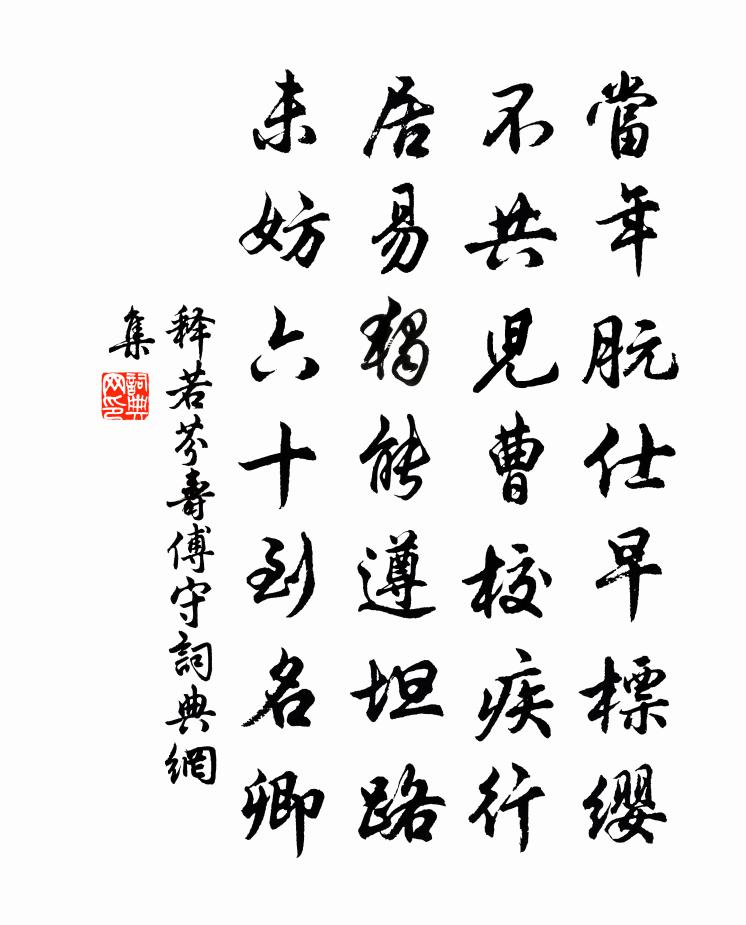 當年脘仕早標纓
不共兒曹校疾行
居易獨能遵坦路
未妨六十到名卿
釋若芬壽傅守詞典網
集
詞典
网印